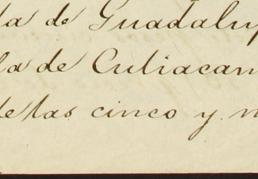 da de Guadalup
la de Culiacan
de las cinco y m